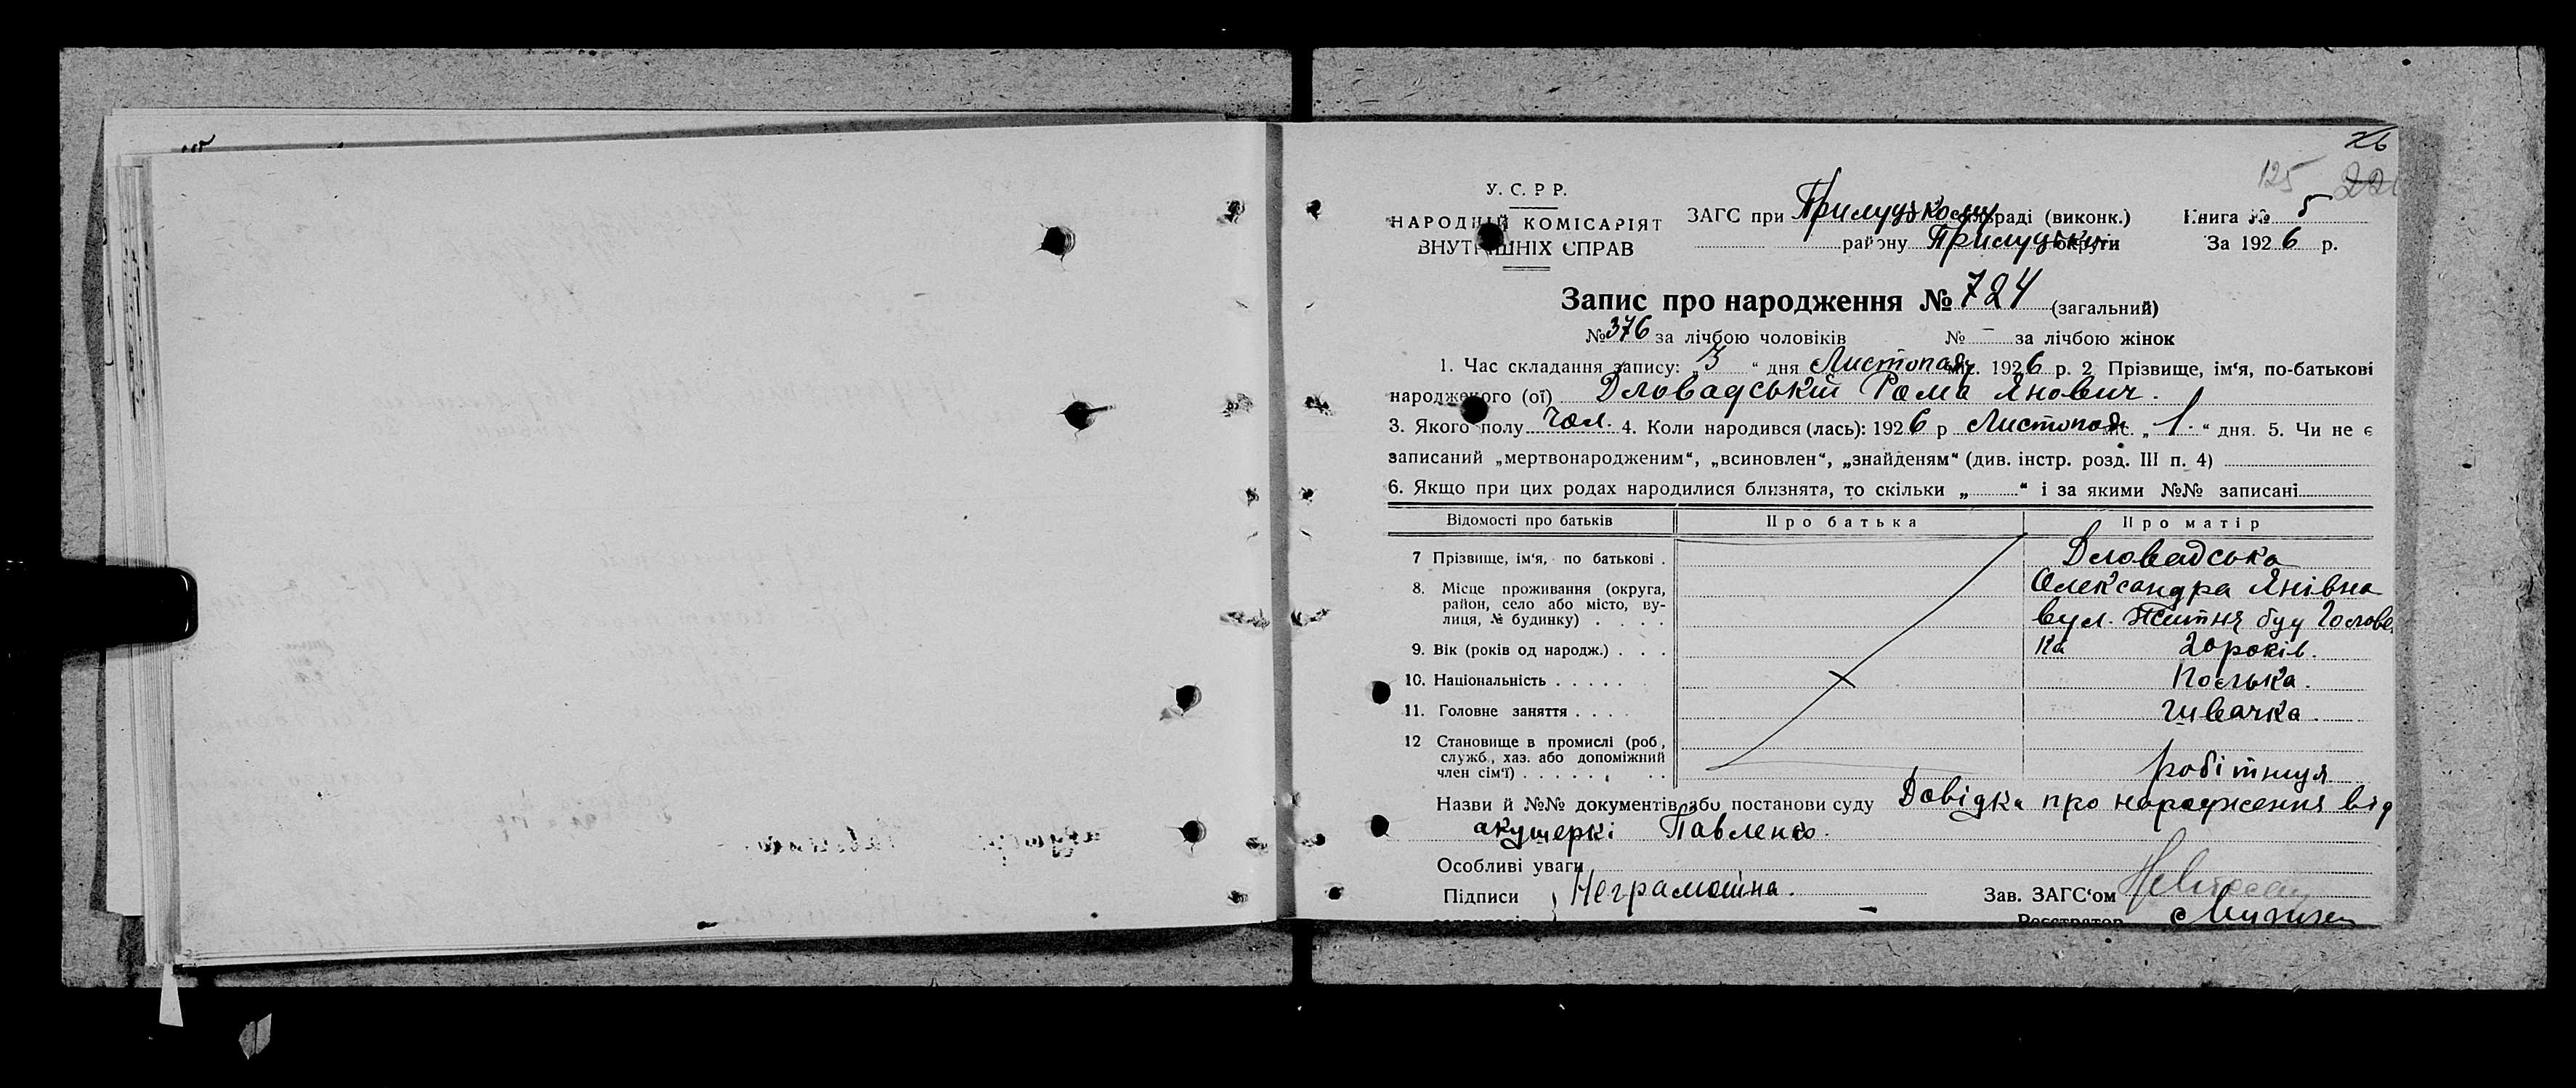 125
У. С. Р Р.
НАРОДНІЙ КОМІСАРІЯТ
ВНУТРІШНІХ СПРАВ
ЗАГС при Прилуцькому раді (виконк.) Книга № 5
району Прилуцьки округи За 1926 р.
Запис про народження № 724 (загальний)
№ 376 за лічбою чоловіків № — за лічбою жінок
1. Час складання запису: „3“ дня Листопад міс. 1926 р. 2 Прізвище, ім‘я, по-батькові
народженого (ої) Дловадський Рома Янович.
3. Якого полу чол. 4. Коли народився (лась): 1926 р Листопад міс. „1.“ дня. 5. Чи не є
записаний „мертвонародженим“, „всиновлен“, „знайденям“ (див. інстр. розд. III п. 4)
6. Якщо при цих родах народилися близнята, то скільки „ “ і за якими №№ записані
Відомості про батьків Про батька Про матір
7 Прізвище, ім‘я, по батькові . Дловадська
Олександра Янівна
8. Місце проживання (округа,
район, село або місто, ву-
лиця, № будинку) . . . . вул. Житня буд Голове
9. Вік (років од народж.) . . . ка 20 років.
10. Національність . . . . . Полька.
11. Головне заняття . . . . швачка.
12 Становище в промислі (роб,
служб, хаз. або допоміжний
член сім‘ї) . . . . . . . . робітниця
Назви й №№ документів або постанови суду Довідка про народження від
акушеркі Павленко.
Особливі уваги
Підписи } Неграмотна. Зав. ЗАГС‘ом
Реєстратор